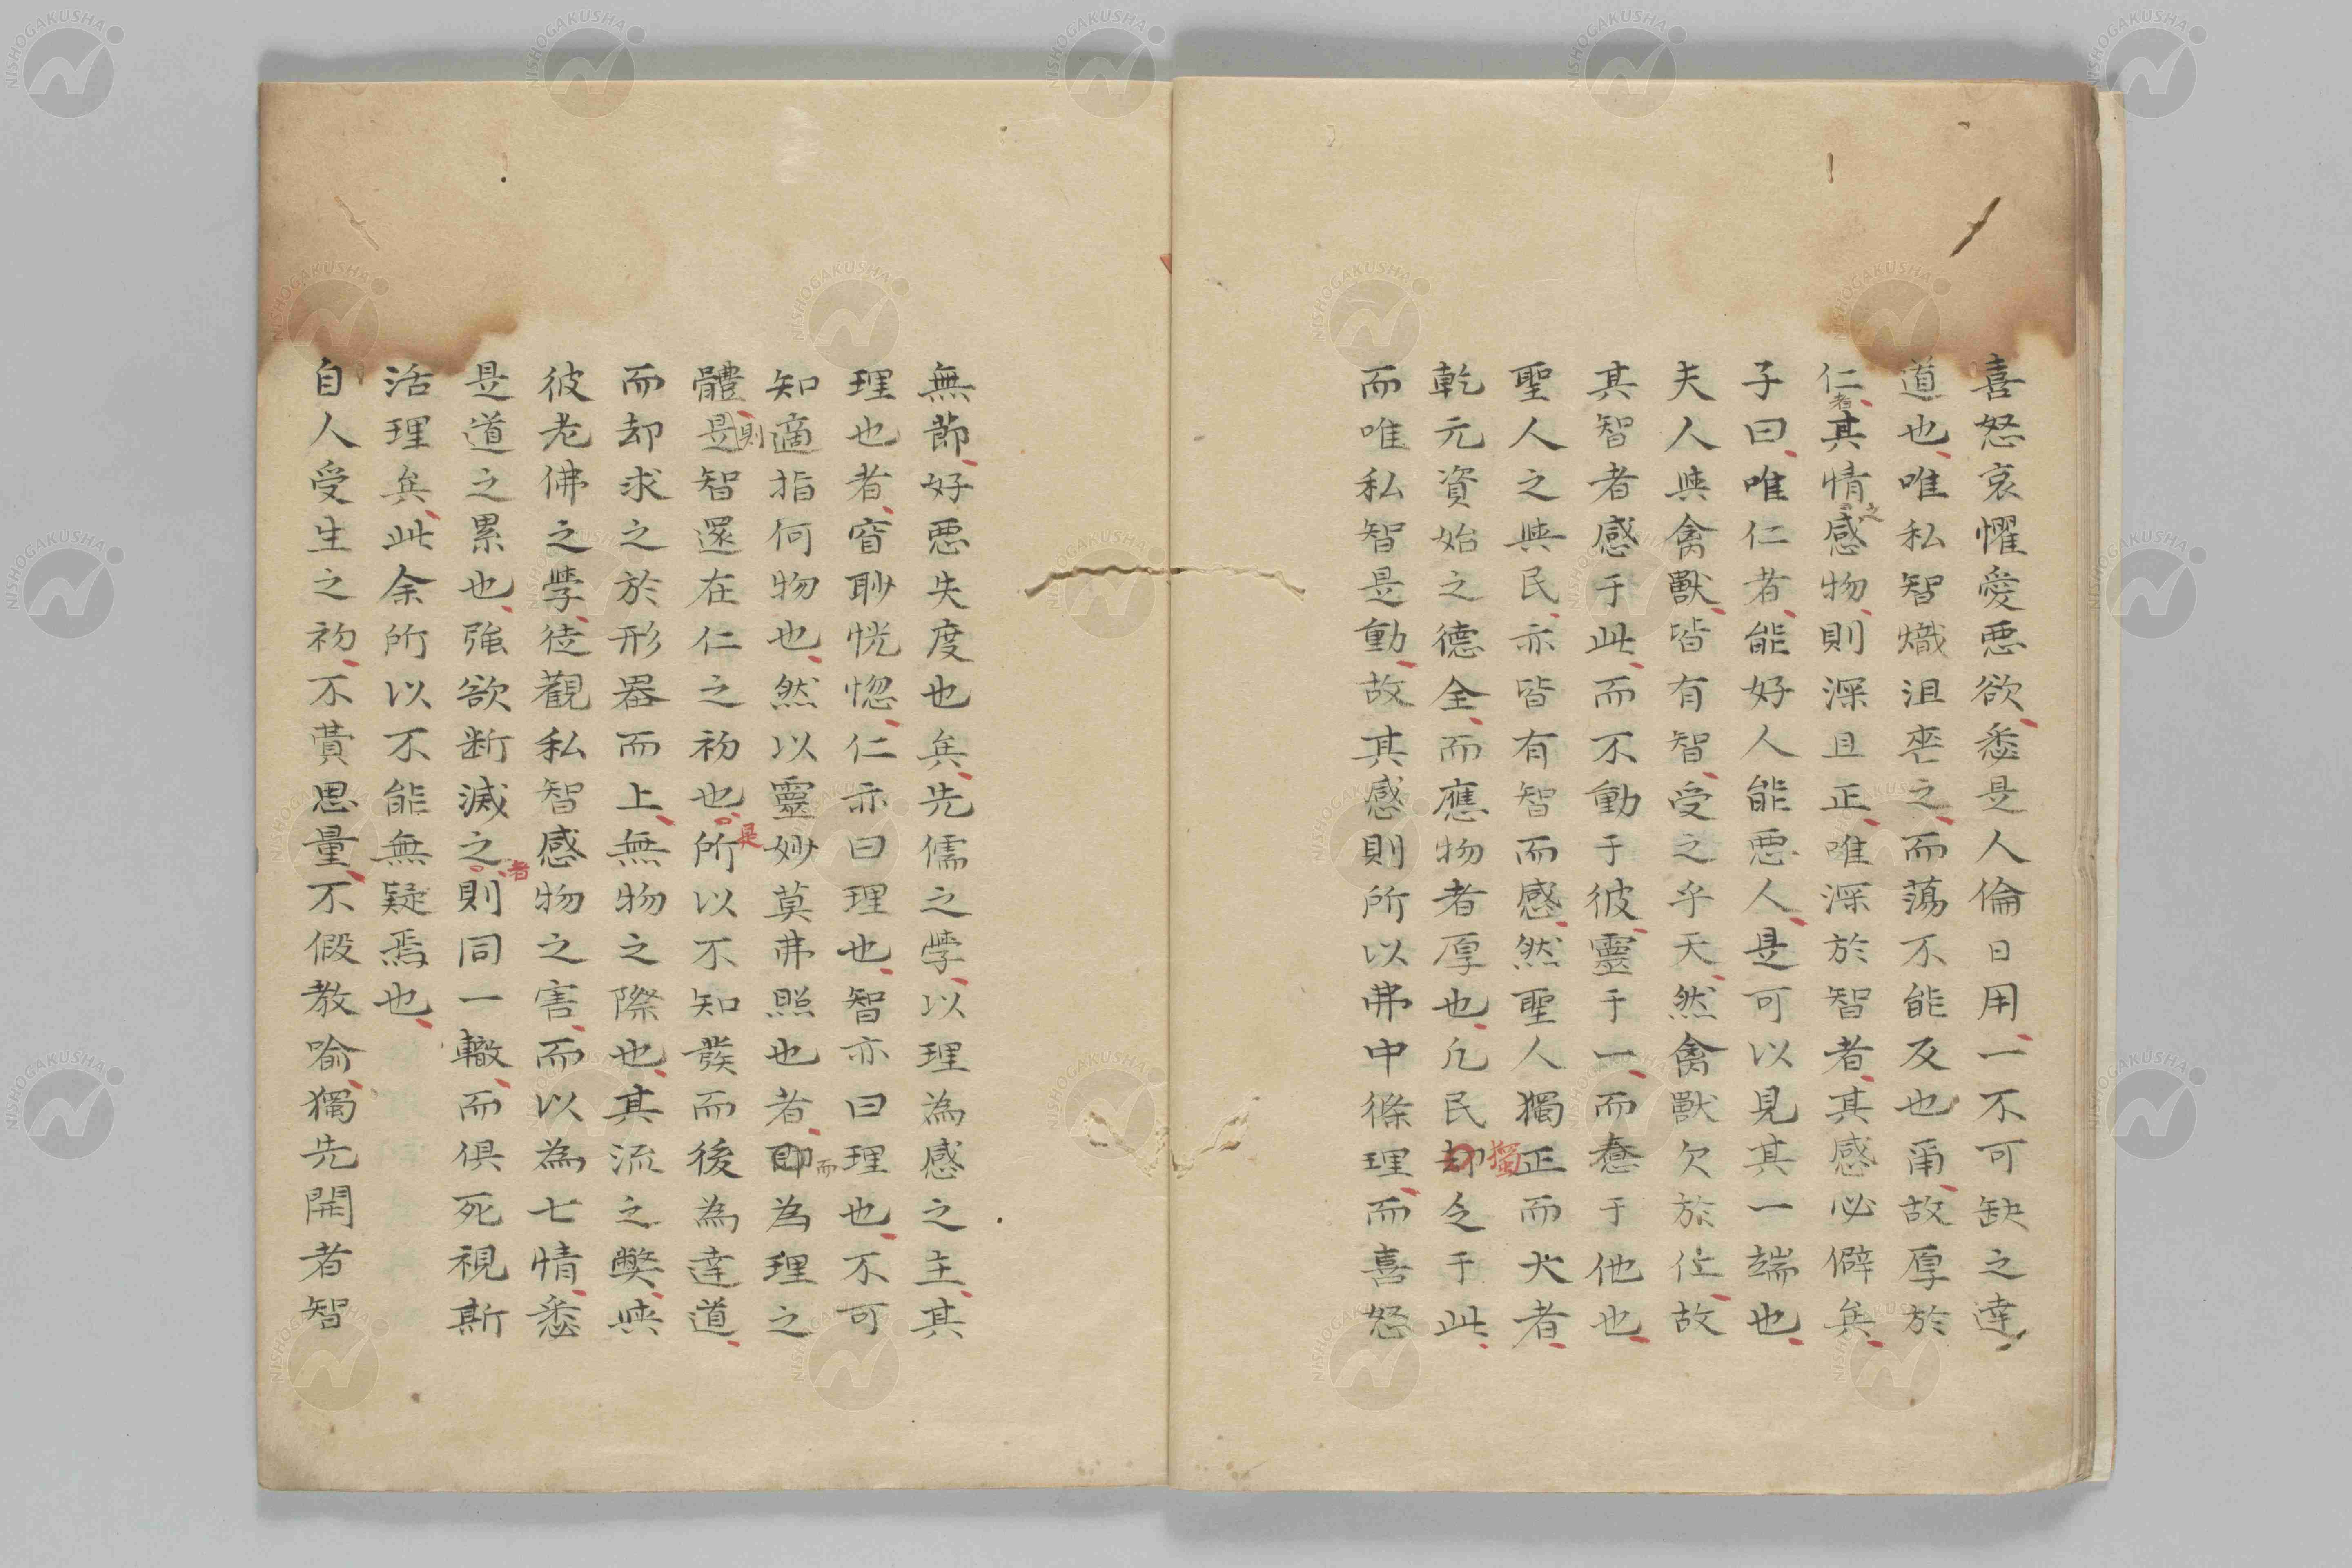 喜怒哀懼愛悪欲悉是人倫日用一不可缺之達
道也唯私智熾沮

之而蕩不能及也甭故厚於
仁者其情之感物則深且正唯深於智者其感必僻矣
子曰唯仁者能好人能悪人是可以見其一端也
夫人與禽獸皆有智受之乎天然禽獸欠於仁故
其智者感于此而不動于彼靈于一而惷于他也
聖人之與民亦皆有智而感然聖人獨正而大者
乾元資始之德全而應物者厚也凡民却獨乏于此
而唯私智是動故其感則所以弗中條理而喜怒
無節好悪失度也矣先儒之學以理為感之主其
理也者窅眇恍惚仁亦曰理也智亦曰理也不可
知適指何物也然以靈妙莫弗照也者即而為理之
體是則智還在仁之初也是所以不知發而後為達道
而却求之於形器而上無物之際也其流之弊與
彼老佛之學徒觀私智感物之害而以為七情悉
是道之累也強欲断滅之者則同一轍而俱死視斯
活理矣此余所以不能無疑焉也
自人受生之初不費思量不假教喻獨先開者智
NISHOGAKUSHA